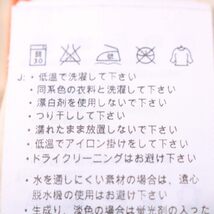 30
J:・低温で洗濯して下さい
・同系色の衣料と洗濯して下さい
・漂白剤を使用しないで下さい
・つり干しして下さい
・濡れたまま放置しないで下さい
・低温でアイロン掛けをして下さい
・ドライクリーニングはお避け下さい
・水を通しにくい素材の場合は、遠心
脱水機の使用はお避け下さい
・生成り、淡色の場合は蛍光剤の入った